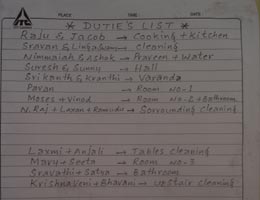 ITC
PLACE TIME DATE
* DUTIE'S LIST *
Raju & Jacob → Cooking + Kitchen
Sravan & Lingaham → cleaning
Nimmaiah & Ashok → Praveen + Water
Suresh & Sunny → Hall
Srikanth & Kranthi → Varanda
Pavan → Room No-1
Moses + Vinod → Room No-2 + Bathroom
N. Raj + Laxan + Ramudu → Sorrounding cleaning
Laxmi + Anjali → Tables cleaning
Mary + Seeta → Room No.3
Sravathi + Satya → Bathroom
Krishnaveni + Bhavani → upstair cleaning